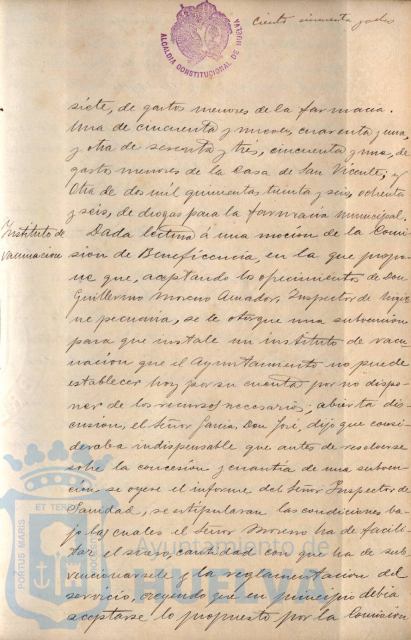 Ciento cincuenta y ocho
ALCALDIA CONSTITUCIONAL DE HUELVA
siete, de gastos menores de la farmacia.
Una de cincuenta y nueve, cuarenta y una,
y otra de sesenta y tres, cincuenta y una, de
gastos menores de la Casa de San Vicente; y
Otra de dos mil quinientas treinta y seis, ochenta
y seis, de drogas para la farmacia municipal.
Instituto de
vacunación
Dada lectura á una moción de la Comi-
sion de Beneficencia, en la que propo-
ne que, aceptando los ofrecimientos de Don
Guillermo Moreno Amador, Inspector de Higie-
ne pecuaria, se le otorgue una subvencion
para que instale un instituto de vacu-
nacion que el Ayuntamiento no puede
establecer hoy por su cuenta por no dispo-
ner de los recursos necesarios; abierta dis-
cusion, el Señor Garcia Don José, dijo que consi-
deraba indispensable que antes de resolverse
sobre la concesion y cuantia de una subven-
ción, se oyese el informe del Señor Inspector de
Sanidad, se estipularan las condiciones ba-
jo las cuales el Señor Moreno ha de facili-
tar el suero, cantidad con que ha de sub-
vencionarsele y la reglamentacion del
servicio, creyendo que en principio debia
aceptarse lo propuesto por la Comision
PORTUS MARIS
ET TERRAE
Ayuntamiento de
HUELVA